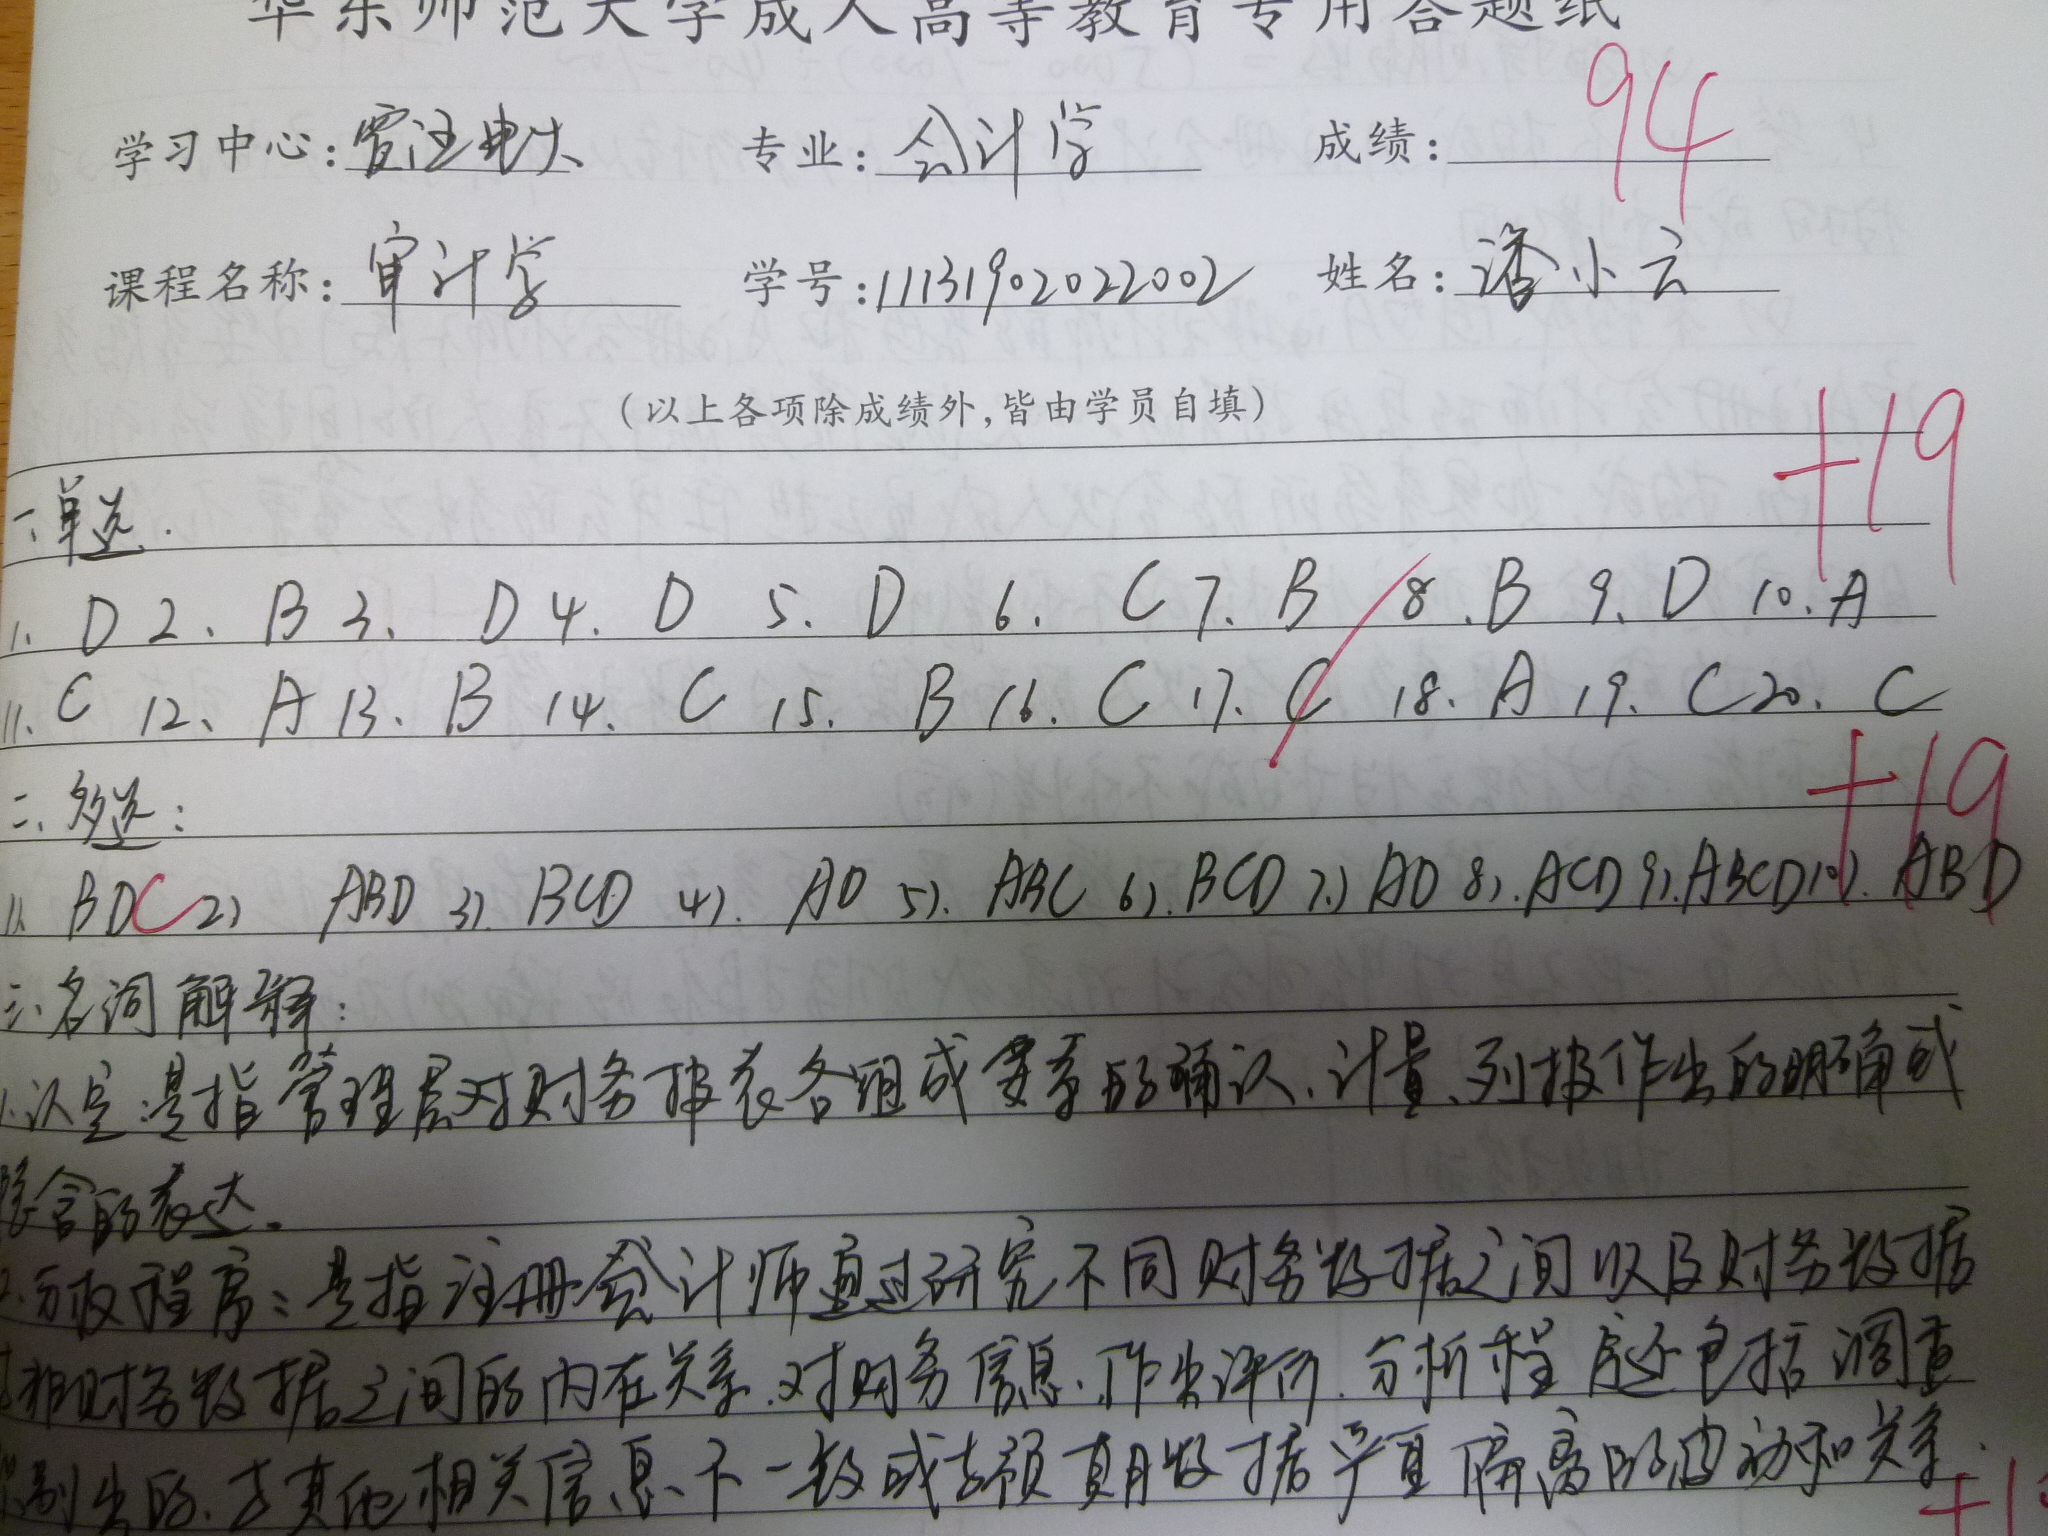 华东师范大学成人高等教育专用答题纸
学习中心:贾汪电大 专业:会计学 成绩:94
课程名称:审计学 学号:11131902022002 姓名:潘小云
(以上各项除成绩外,皆由学员自填)
+19
一、单选.
1、D 2、B 3、D 4、D 5、D 6、C 7、B 8、B 9、D 10、A
11、C 12、A 13、B 14、C 15、B 16、C 17、C 18、A 19、C 20、C
+19
二、多选:
1). BDC 2) ABD 3). BCD 4). AD 5). ABC 6). BCD 7.) AD 8). ACD 9). ABCD 10). ABD
三、名词解释:
1.认定:是指管理层对财务报表各组成要素的确认、计量、列报作出的明确或
隐含的表达。
2.分析程序:是指注册会计师通过研究不同财务数据之间以及财务数据
与非财务数据之间的内在关系.对财务信息.作出评价.分析程序还包括调查
识别出的.与其他相关信息不一致或与预期数据严重偏离的波动和关系.